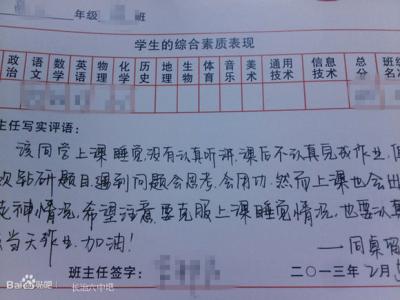 年级 班
学生的综合素质表现
政治 语文 数学 英语 物理 化学 历史 地理 生物 体育 音乐 美术 通用技术 信息技术 总分 班级名
主任写实评语:
该同学上课睡觉,没有认真听讲,课后不认真完成作业,但
欢钻研题目,遇到问题会思考,会用功.然而上课也会出
走神情况,希望注意要克服上课睡觉情况,也要认真
当天作业.加油!
——同桌
班主任签字:
二○一三年2月
Bai 百度贴吧 / 长治六中吧